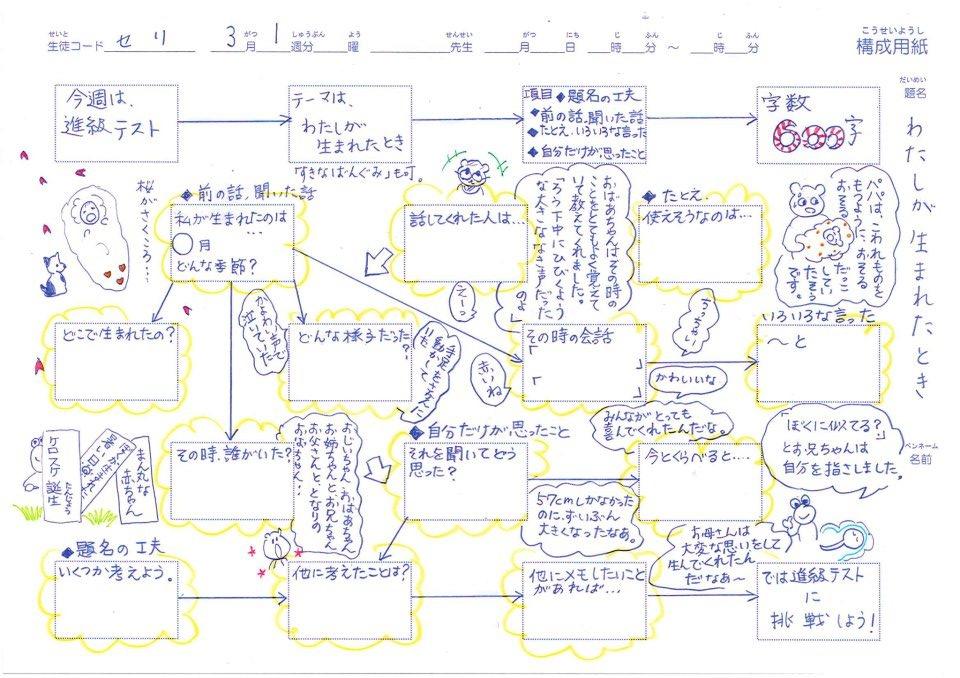 せいと
生徒コード セリ 3月 1週分 曜 先生 月 日 時 分 ～ 時 分
こうせいようし
構成用紙
だいめい
題名
わたしが生まれたとき
ペンネーム
名前
今週は、
進級テスト
テーマは、
わたしが
生まれたとき
「すきなばんぐみ」も可。
項目◆題名の工夫
◆前の話、聞いた話
◆たとえ、いろいろな言った
◆自分だけが思ったこと
字数
600字
桜がさくころ…
◆前の話、聞いた話
私が生まれたのは
…
〇月
どんな季節？
話してくれた人は…
おばあちゃんはその時の
ことをとてもよく覚えて
いて教えてくれました。
「ろう下中にひびくよう
な大きななき声だった
のよ」
◆たとえ
使えそうなのは…
パパは、こわれものを
もつように、おそる
おそる
だっこ
していた
そう
です。
どこで生まれたの？
かなわい声で
泣いていた
どんな様子だった？
手足をさかんに
動かして
いた
えーっ
赤いね
その時の会話
「
」
「
」
ちっちゃい
かわいいな
いろいろな言った
～と
みんながとっても
喜んでくれたんだな。
「ぼくに似てる？」
とお兄ちゃんは
自分を指さしました。
ケロスケ誕生
たんじょう
暑い日
まん丸な
赤ちゃん
その時、誰がいた？
おじいちゃん、おばあちゃん
お姉ちゃんとお兄ちゃん
お父さんと、となりの
おばちゃん…
◆自分だけが思ったこと
それを聞いてどう
思った？
57cmしかなかった
のに、ずいぶん
大きくなったなあ。
今とくらべると…
お母さんは
大変な思いをして
生んでくれたん
だなあ～
◆題名の工夫
いくつか考えよう。
他に考えたことは？
他にメモしたいこと
があれば…
では進級テスト
に
挑戦しよう！